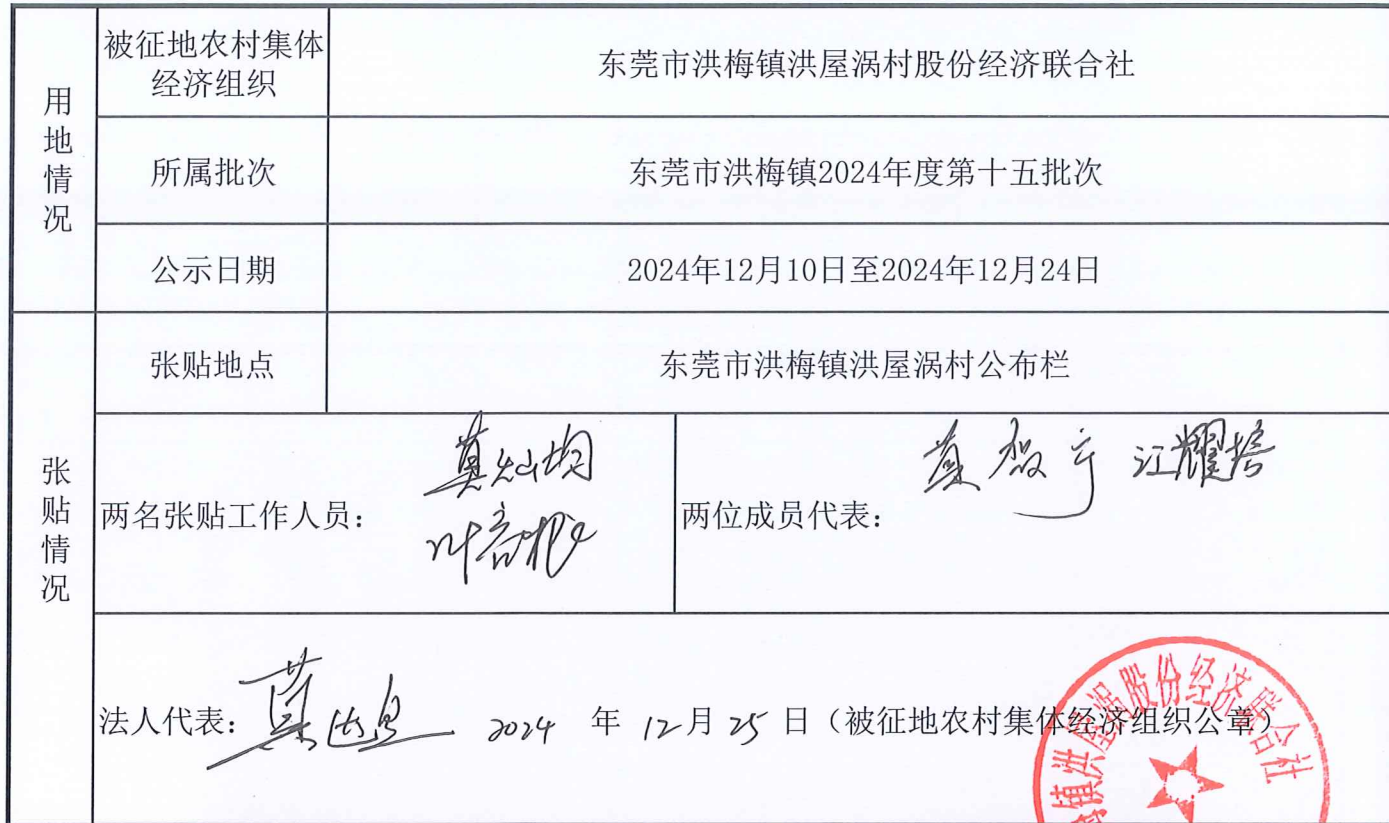 用地情况
被征地农村集体
经济组织
东莞市洪梅镇洪屋涡村股份经济联合社
所属批次
东莞市洪梅镇2024年度第十五批次
公示日期
2024年12月10日至2024年12月24日
张贴情况
张贴地点
东莞市洪梅镇洪屋涡村公布栏
两名张贴工作人员:
两位成员代表:
江耀培
法人代表: 2024 年 12月 25 日(被征地农村集体经济组织公章)
镇洪屋涡股份经济联合社